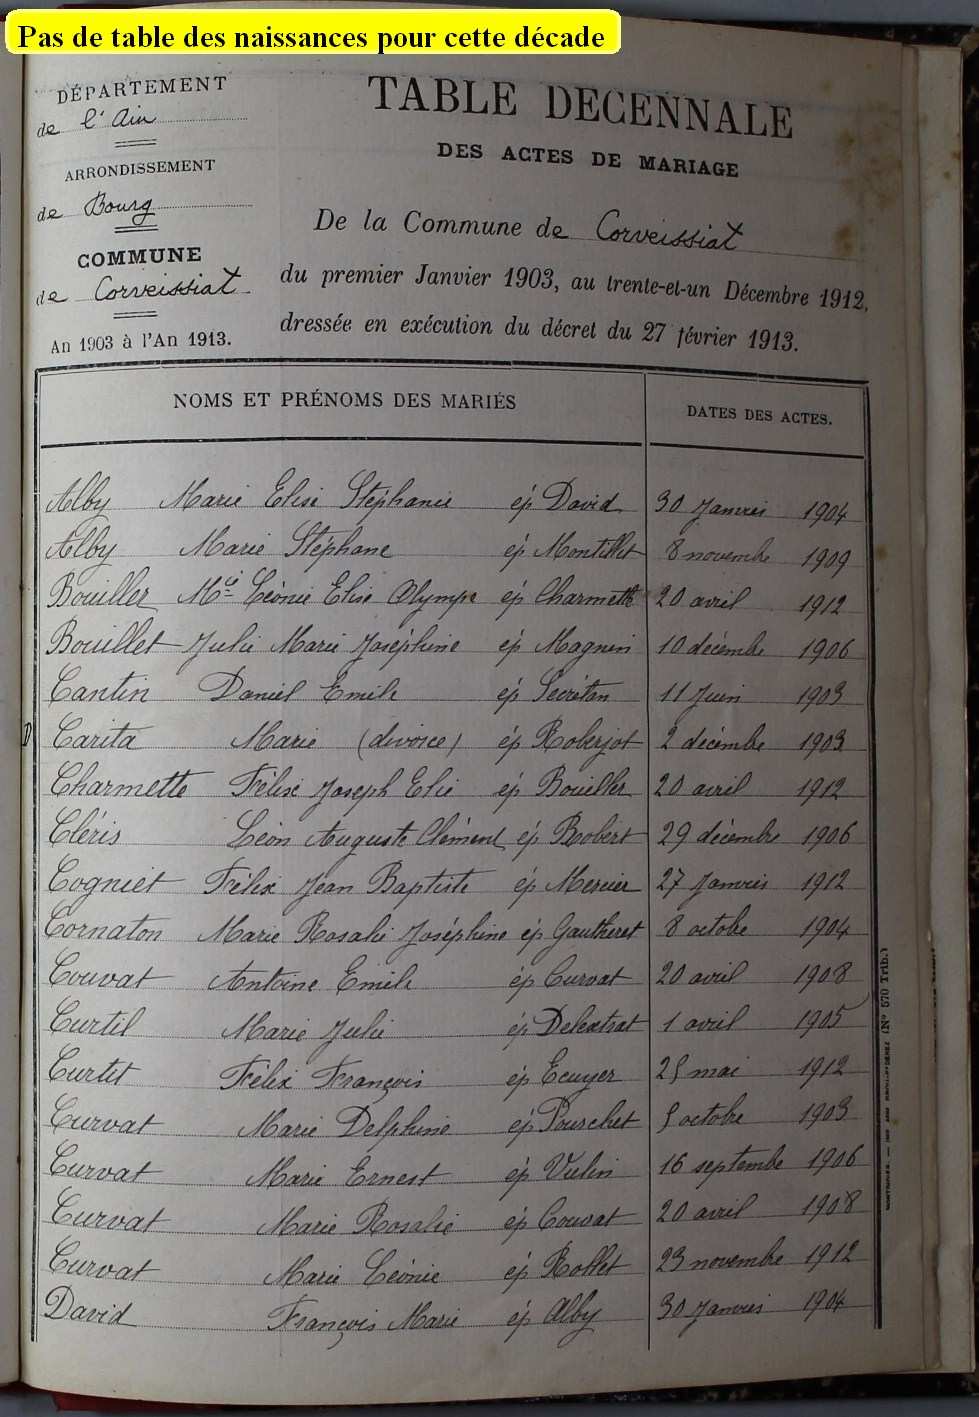 Pas de table des naissances pour cette décade
DÉPARTEMENT
de l'Ain
ARRONDISSEMENT
de Bourg
COMMUNE
de Corveissiat
An 1903 à l'An 1913.
TABLE DECENNALE
DES ACTES DE MARIAGE
De la Commune de Corveissiat
du premier Janvier 1903, au trente-et-un Décembre 1912,
dressée en exécution du décret du 27 février 1913.
NOMS ET PRÉNOMS DES MARIÉS DATES DES ACTES.
Alby Marie Elise Stéphanie ép David 30 Janvier 1904
Alby Marie Stéphane ép Montillet 8 novembre 1909
Bouiller Mie Léonie Elise Olympe ép Charmette 20 avril 1912
Bouillet Julie Marie Joséphine ép Magnin 10 décembre 1906
Cantin Daniel Emile ép Secrétan 11 Juin 1903
D Carita Marie (divorce) ép Roberjot 2 décembre 1903
Charmette Félix Joseph Elie ép Bouiller 20 avril 1912
Cléris Léon Auguste Clément ép Robert 29 décembre 1906
Cogniet Félix Jean Baptiste ép Mercier 27 Janvier 1912
Cornaton Marie Rosalie Joséphine ép Gautheret 8 octobre 1904
Couvat Antoine Emile ép Curvat 20 avril 1908
Curtil Marie Julie ép Delextrat 1 avril 1905
Curtet Félix François ép Ecuyer 25 mai 1912
Curvat Marie Delphine ép Pourchet 5 octobre 1903
Curvat Marie Ernest ép Vulin 16 septembre 1906
Curvat Marie Rosalie ép Couvat 20 avril 1908
Curvat Marie Léonie ép Rollet 23 novembre 1912
David François Marie ép Alby 30 Janvier 1904
(N° 570 Trib.)